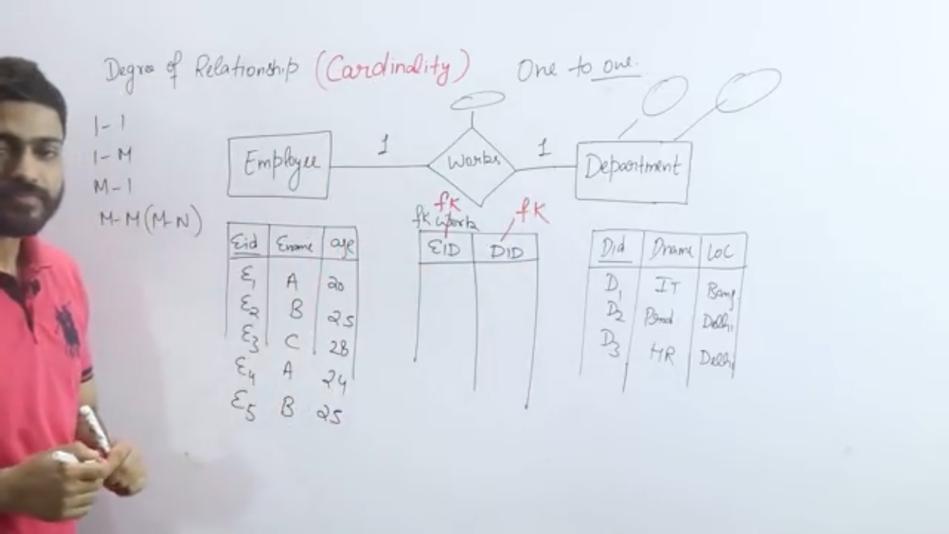 Degree of Relationship (Cardinality) One to one.
1-1
1-M
M-1
M-M (M-N)
Employee 1 Works 1 Department
fk fk
fk
Eid Ename age
E1 A 20
E2 B 25
E3 C 28
E4 A 24
E5 B 25
EID DID
Did Dname Loc
D1 IT Bang
D2 Delhi
D3 HR Delhi